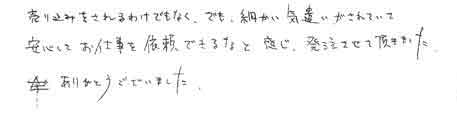 売り込みをされるわけでもなく、でも、細かい気遣いがされていて
安心してお仕事を依頼できるなと感じ、発注させて頂きました。
ありがとうございました。